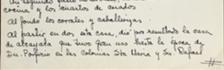 cocina y los cuartos de criados
Al fondo los corrales y caballerizas.
Al partir en dos esta casa, dió por resultado la casa
de al que tuvo fran uso hasta la época de
Don Porfirio en las Colonias Sta María y Sn Rafael